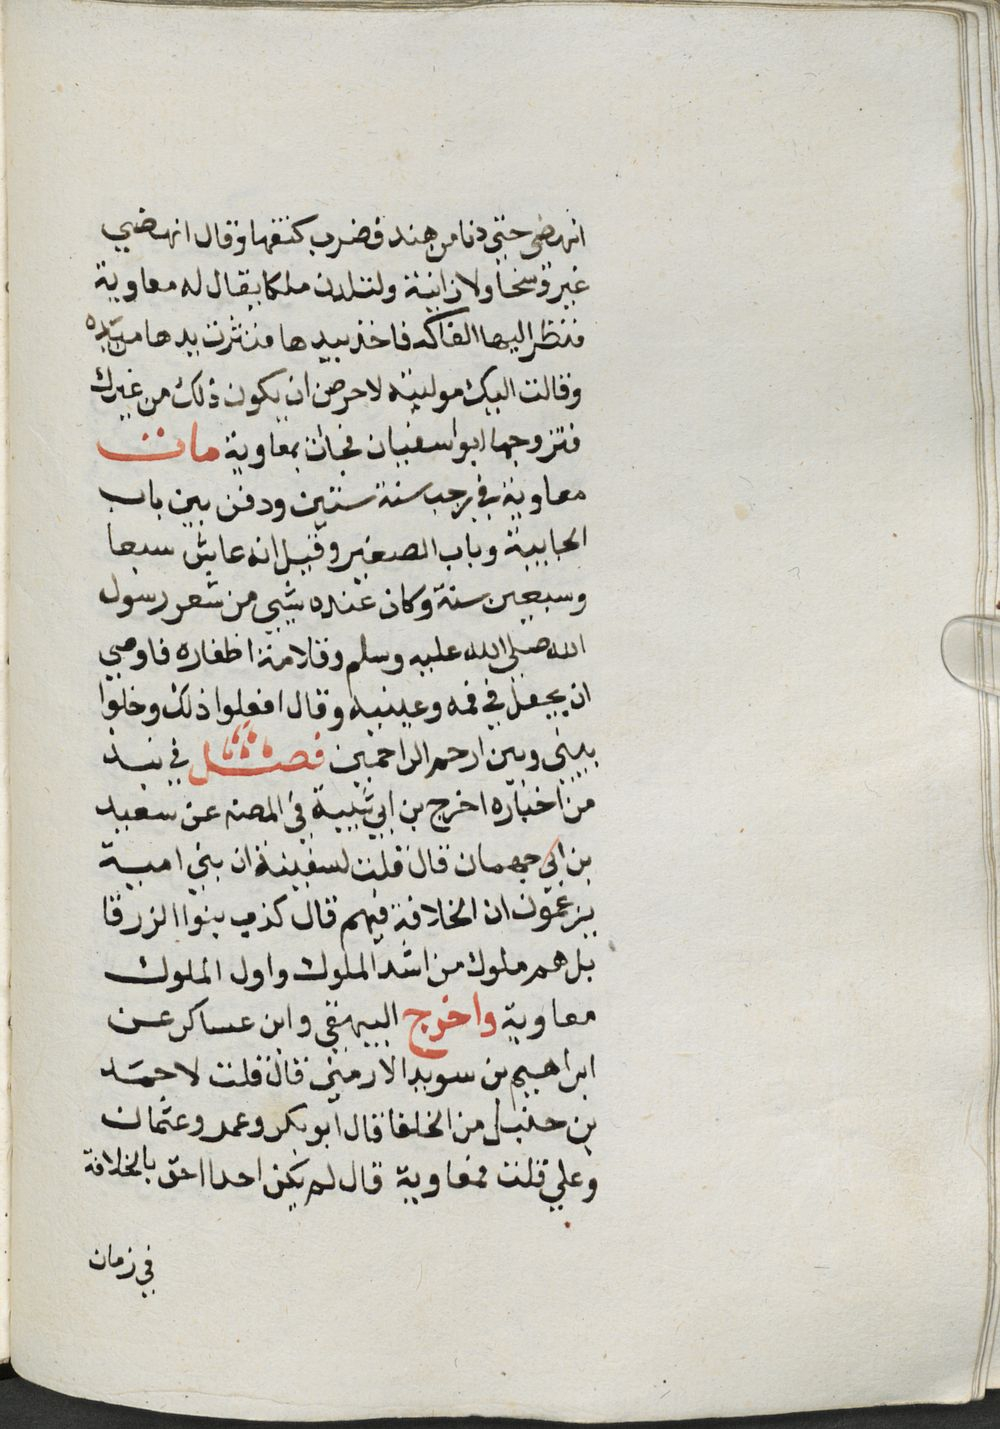 انهضي حتي دنا من هند فضرب كتفها وقال انهضي
غير وسخا ولا زانية ولتلدن ملكا يقال له معاوية
فنظر اليها الفاكه فاخذ بيدها فنثرت يدها من يده
وقالت اليك لاحرصن ان يكون ذلك من غيرك
فتزوجها ابو اسفيان فجات بمعاوية مات
معاوية في رجب سنة ستين ودفن بين باب
الجابية وباب الصغير وقيل انه عاش سبعا
وسبعين سنة وكان عنده شي من شعر رسول
الله صلي الله عليه وسلم وقلامة اظفاره فاوصي
ان يجعل في فمه وعينيه وقال افعلوا ذلك وخلوا
بيني وبين ارحم الراحمين فصل في نبذ
من اخباره اخرج بن ابي شيبة في المصنف عن سعيد
بن ابي جمهان قال قلت لسفينة ان بني امية
يزعمون ان الخلافة فيهم قال كذب بنوا الزرقا
بل هم ملوك من اشد الملوك واول الملوك
معاوية واخرج البيهقي وابن عساكر عن
ابراهيم بن سويد الارمني قال قلت لاحمد
بن حنبل من الخلفا قال ابو بكر وعمر وعثمان
وعلي قلت فمعاوية قال لم يكن احدا احق بالخلافة
في زمان